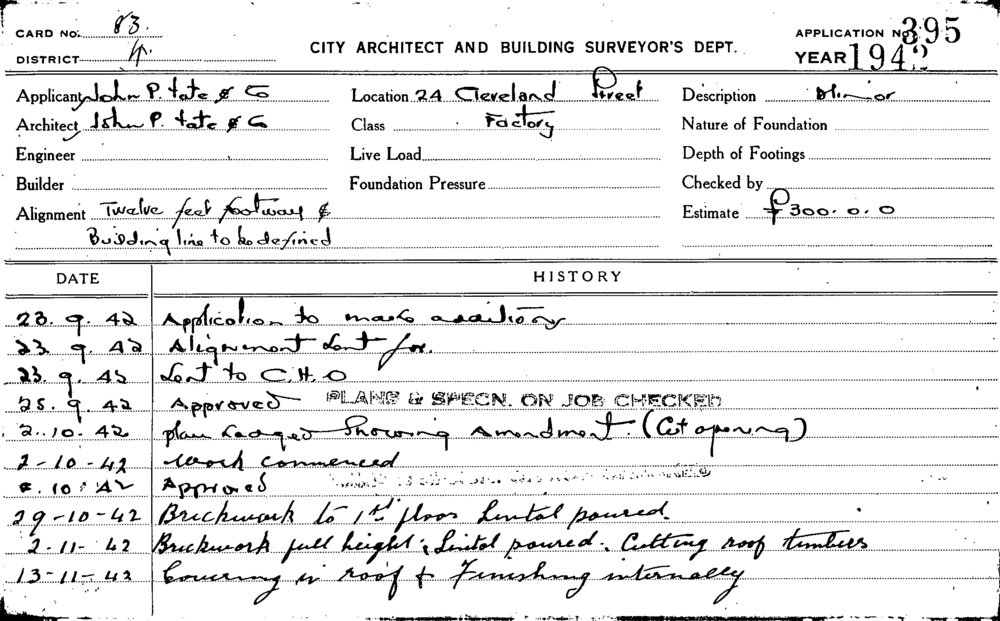 CARD No. 83.
DISTRICT 4.
CITY ARCHITECT AND BUILDING SURVEYOR'S DEPT.
APPLICATION No. 395
YEAR 1942
Applicant John P. Tate & Co
Location 24 Cleveland Street
Description Minor
Architect John P. Tate & Co
Class Factory
Nature of Foundation
Engineer
Live Load
Depth of Footings
Builder
Foundation Pressure
Checked by
Alignment Twelve feet footway &
Building line to be defined
Estimate £300.0.0
DATE HISTORY
23. 9. 42 Application to make additions
23. 9. 42 Alignment sent for.
23. 9. 42 Sent to C.H.O
25. 9. 42 Approved PLANS & SPECN. ON JOB CHECKED
2. 10. 42 plan lodged Showing Amendment. (Cut opening)
2-10-42 Work commenced
10. 42 Approved
29-10-42 Brickwork to 1st floor Lintol poured.
2-11-42 Brickwork full height; Lintol poured. Cutting roof timbers
13-11-42 Covering in roof & Finishing internally